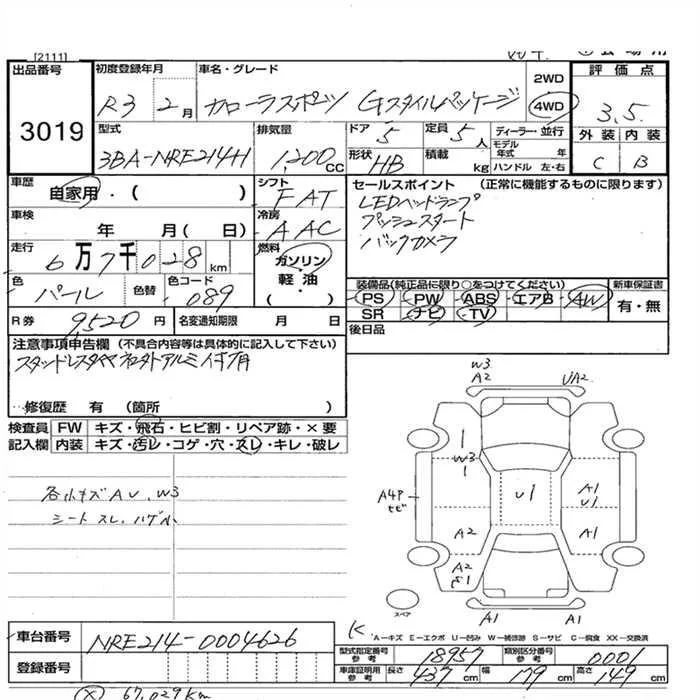 [2111]
出品番号 3019
初度登録年月 R3 2月
車名・グレード カローラスポーツ Gスタイルパッケージ
2WD
4WD
評価点 3.5
外装 内装
C B
型式 3BA-NRE214H
排気量 1,200 CC
ドア 5 定員 5人
形状 HB 積載 kg
ディーラー・並行
モデル年式 年
ハンドル 左・右
車歴 自家用・( )
シフト FAT
車検 年 月( 日)
冷房 AAC
走行 6万7千028km
燃料 ガソリン
軽油
( ・ )
色 パール 色替 色コード 089
R券 9,520円 名変通知期限 月 日
セールスポイント (正常に機能するものに限ります)
LEDヘッドランプ
プッシュスタート
バックカメラ
装備品(純正品に限り○をつけてください)
PS PW ABS エアB AW
SR ナビ TV
新車保証書
有・無
後日品
注意事項申告欄 (不具合内容等は具体的に記入して下さい)
修復歴 有 (箇所 )
検査員 FW キズ・飛石・ヒビ割・リペア跡・×要
記入欄 内装 キズ・汚レ・コゲ・穴・スレ・キレ・破レ
各小キズAU、W3
シートスレ、ハゲA
W3
A2 UA2
W3
A4P
ヒビ
U1
A1
U1
A2 A1
A2
A1 A1
スペア
A-キズ E-エクボ U-凹み W-補修跡 S-サビ C-腐食 XX-交換済
車台番号 NRE214-0004626
登録番号
型式指定番号 参考 18957 類別区分番号 参考 0001
車庫証明用 参考 長さ 437cm 幅 179cm 高さ 149cm
(X) 67,029km